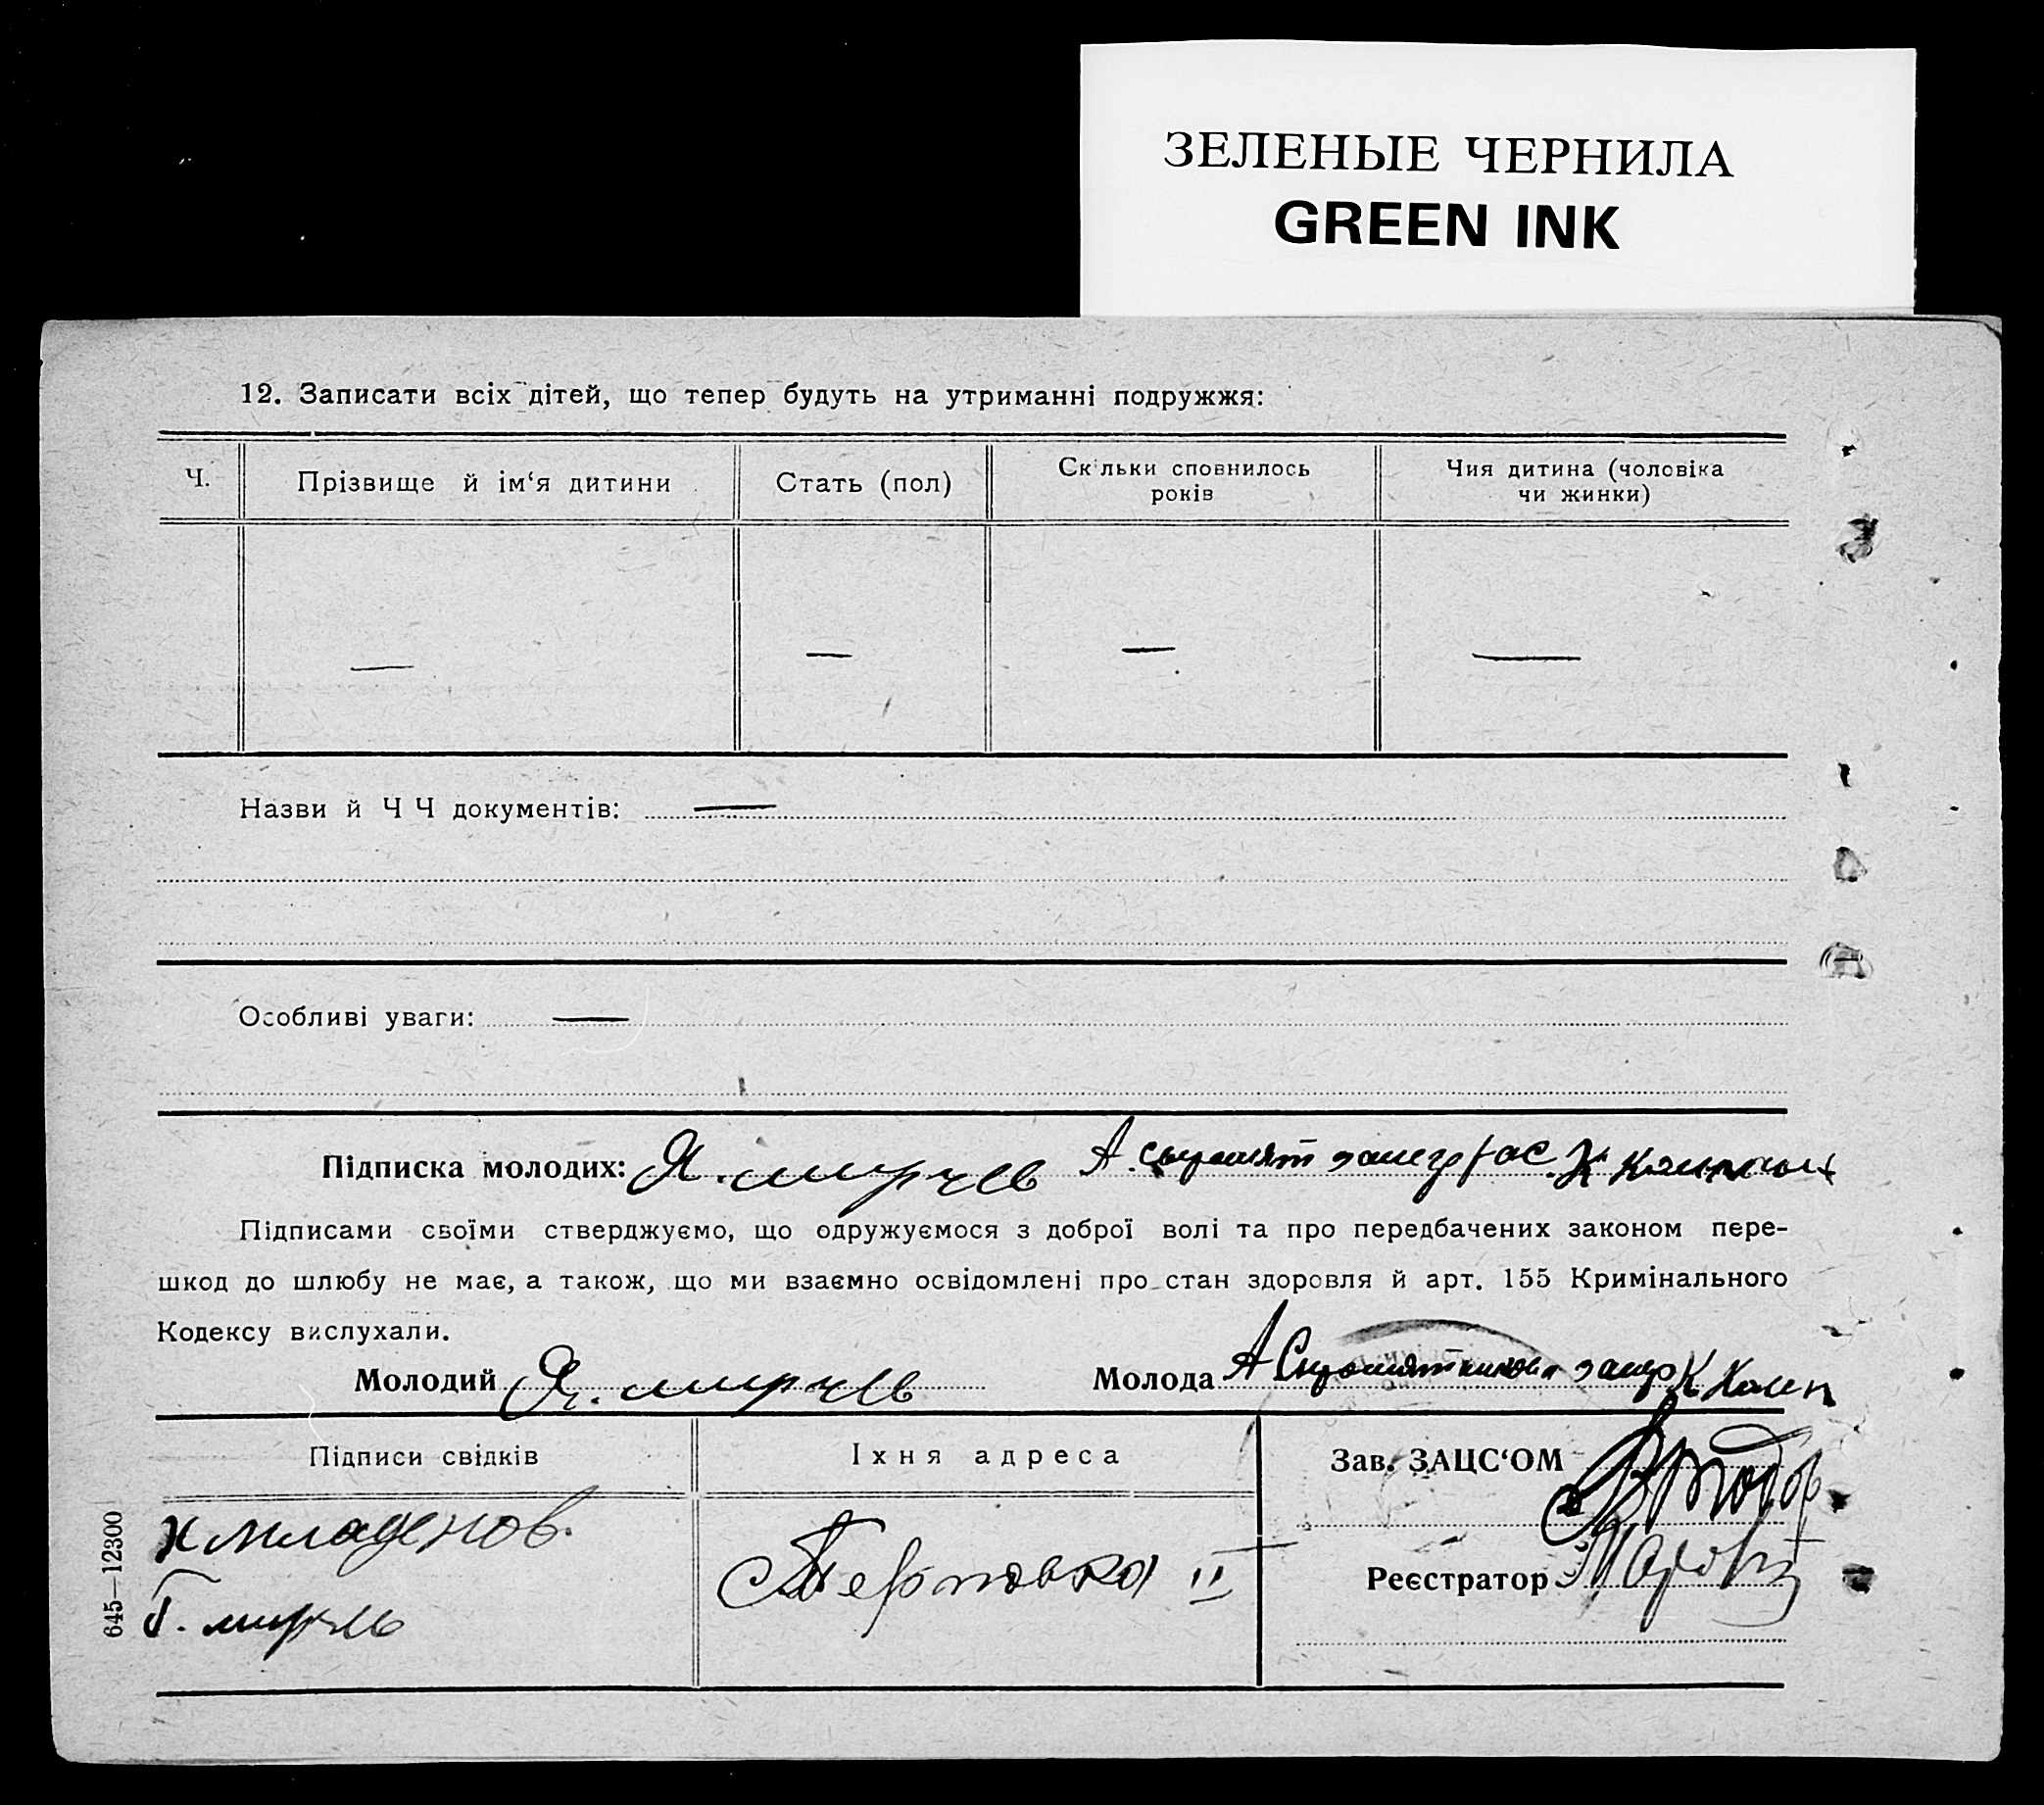 ЗЕЛЕНЫЕ ЧЕРНИЛА
GREEN INK
12. Записати всіх дітей, що тепер будуть на утриманні подружжя:
Ч.
Прізвище й ім‘я дитини
Стать (пол)
Скільки сповнилось
років
Чия дитина (чоловіка
чи жинки)
— — — —
Назви й Ч Ч документів: —
Особливі уваги: —
Підписка молодих: Я. мирчев А.
Підписами своїми стверджуємо, що одружуємося з доброї волі та про передбачених законом пере-
шкод до шлюбу не має, а також, що ми взаємно освідомлені про стан здоровля й арт. 155 Кримінального
Кодексу вислухали.
Молодий Я. мирчев Молода А Сыромятникова
Підписи свідків
Їхня адреса
Зав. ЗАЦС‘ОМ
н младенов
Терновка II
Реєстратор
Г. мирчев
645—12300